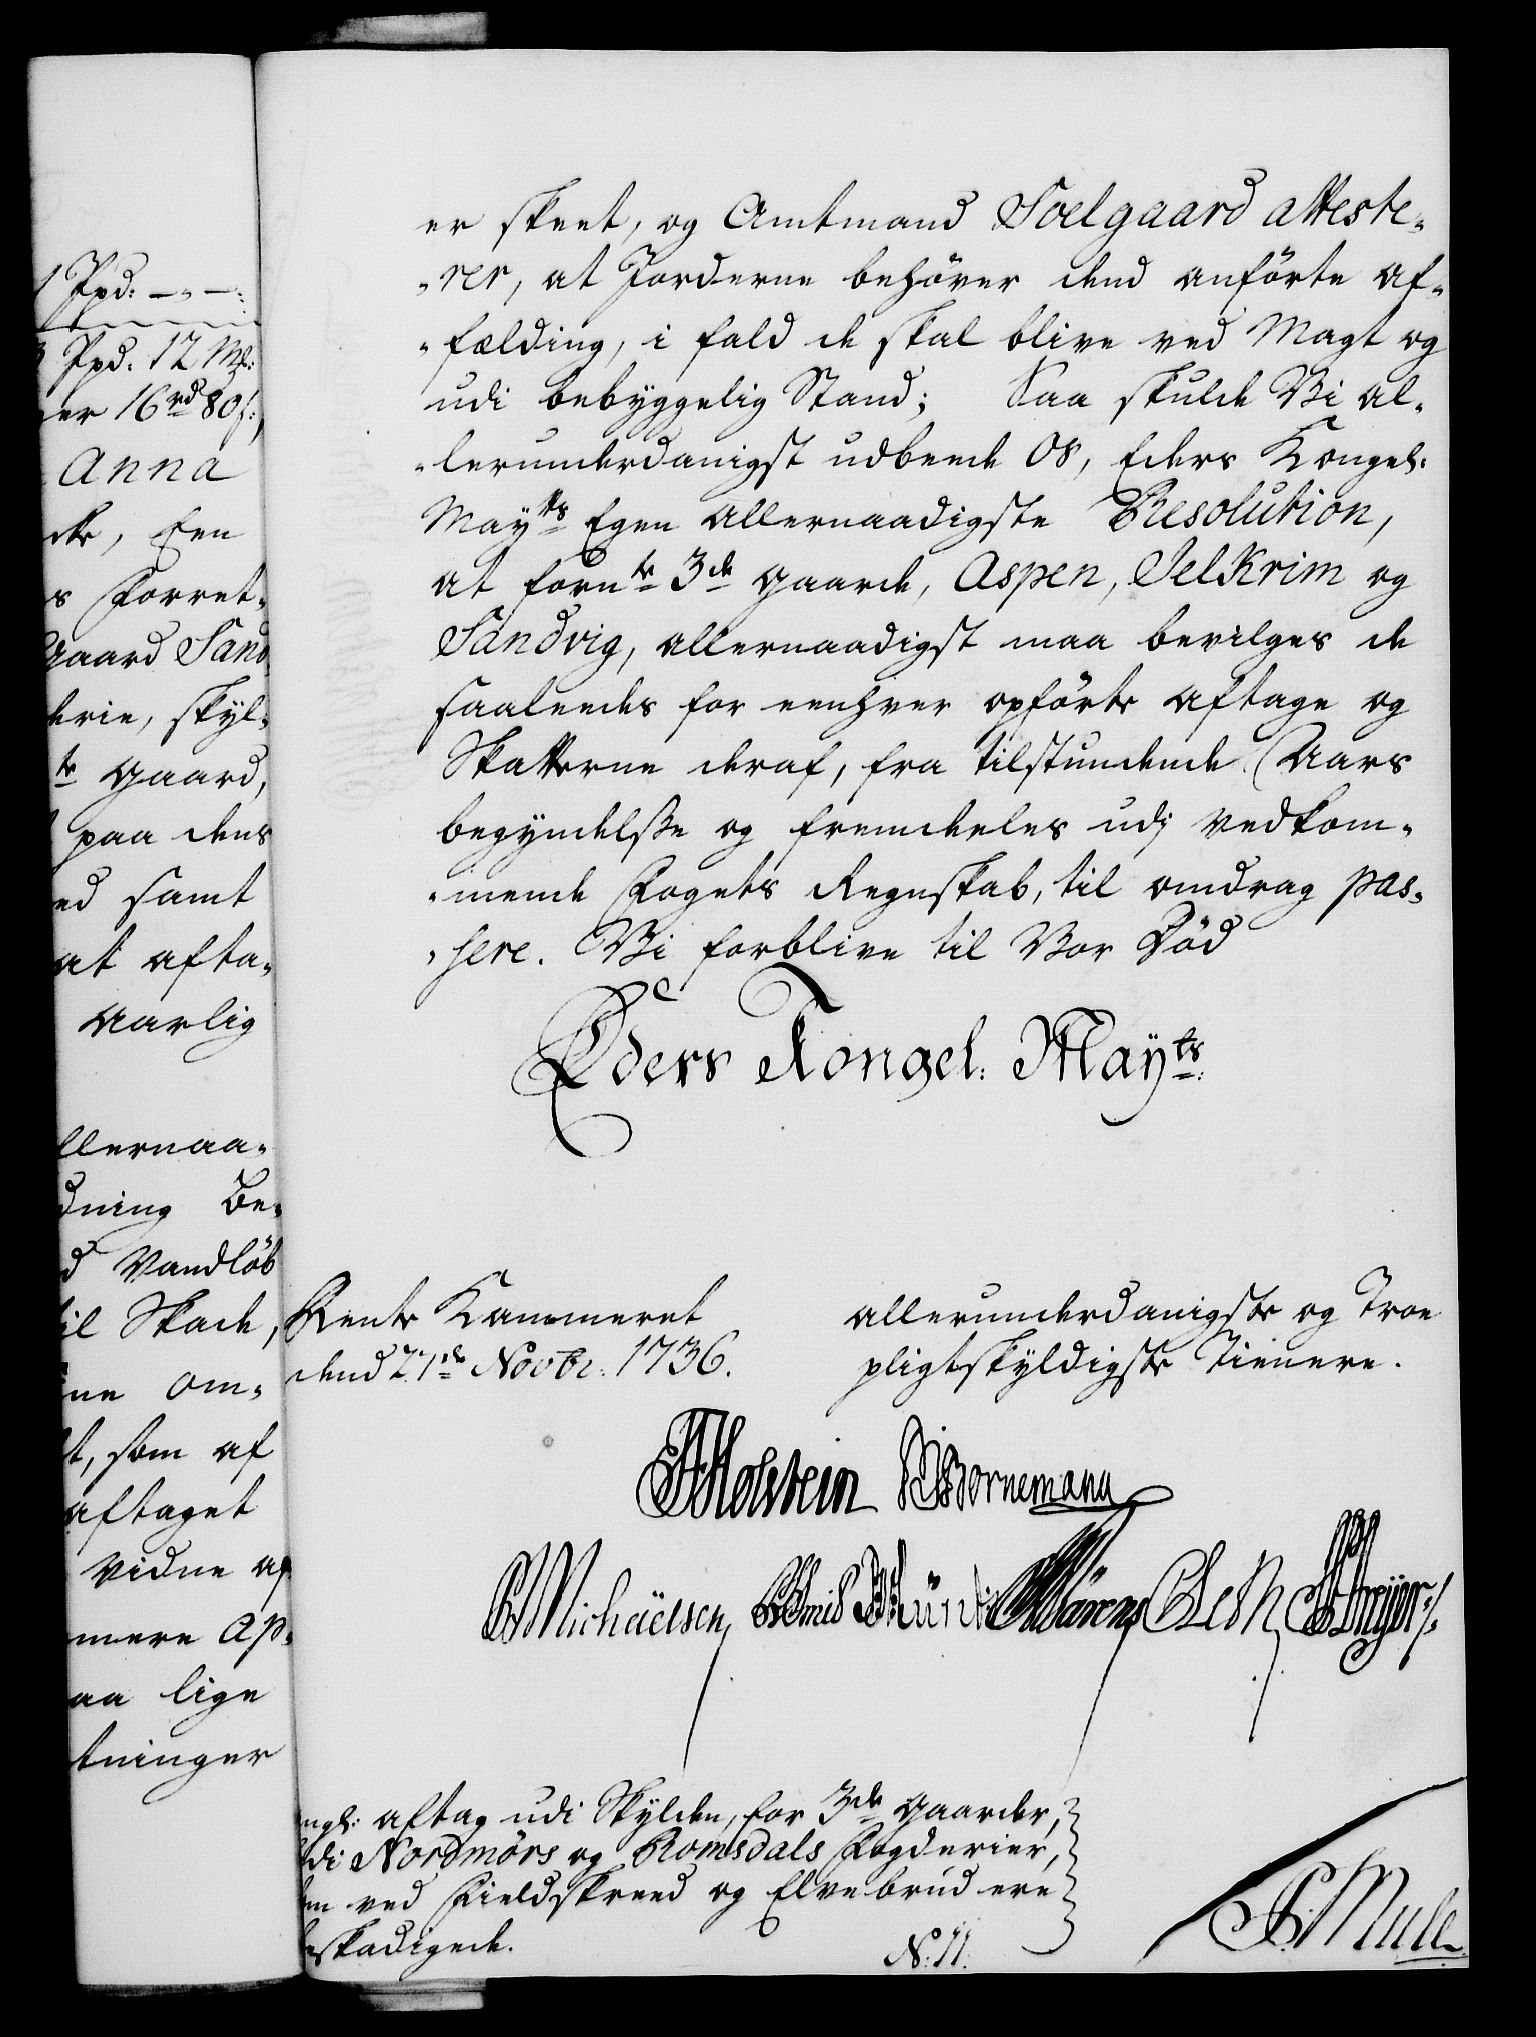 1 Ppd: — " — :
Ppd. 12 Mk:
er 16 rd 80 s:,
Anna
dte, Een
s Forret-
Gaard Sand
derie, skyl-
te gaard,
paa dens
ed samt
at afta-
aarlig
llernaa-
dning be-
d Vandløb
til Skade,
ne om-
t, som af
aftaget
vidne af
mere ap-
aa lige
tninger
er skeet, og Amtmand Soelgaard atteste-
-rer, at Jorderne behöver dend anförte af-
-fælding, i fald de skal blive ved Magt og
udi bebyggelig Stand; Saa skulde Vi al-
-lerunderdanigst udbeede Os, Eders Kongel:
Mayts Egen allernaadigste Resolution,
at fornte 3de gaarde, Aspen, Selkrim og
Sandvig, allernaadigst maa bevilges de
saaleedes for eenhver opförte aftage og
Skatterne deraf, fra tilstundende Aars
begyndelsse og fremdeeles udj vedkom-
-mende Fogets Regnskab, til omdrag pas-
-sere. Vi forblive til Vor Död
Eders Kongel: Mayts:
Rente Kammeret
dend 21de Novbr: 1736.
allerunderdanigste og Troe
pligtskyldigste Tienere.
Holstein Bornemann
Michaëlsen
ngl: aftag udi Skylden, for 3de gaarder,
di Nordmörs og Romsdals Fogderier,
m ved Fieldskreed og Elvebrud ere
eskadigede.
N: 11.